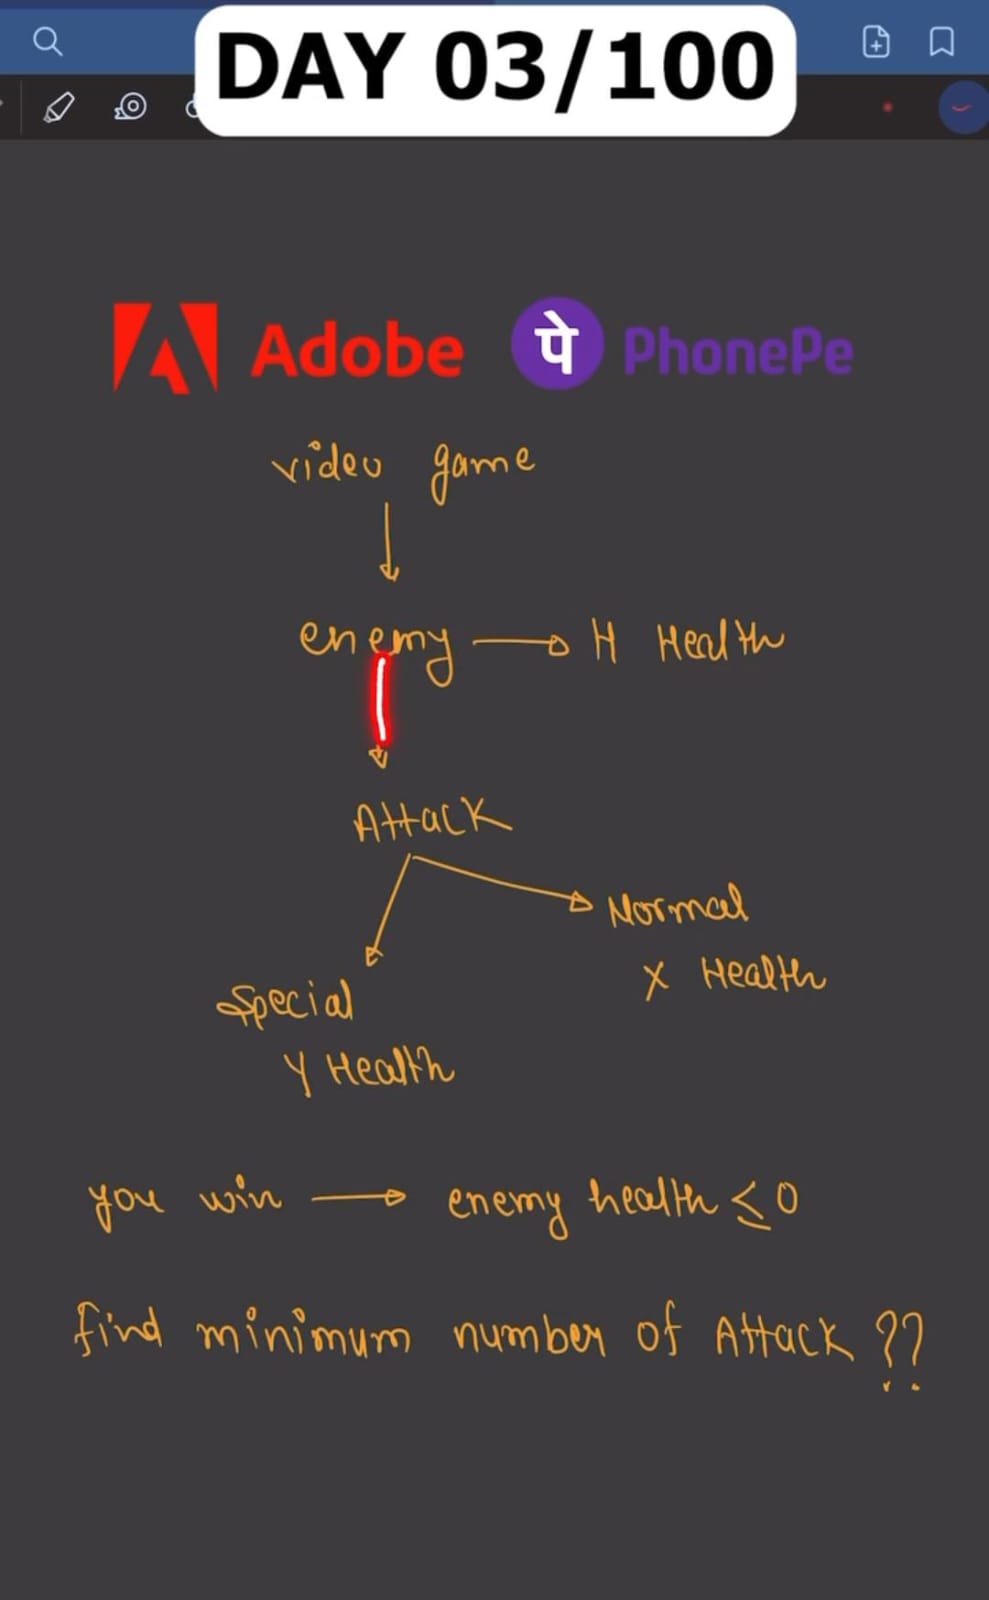 DAY 03/100
Adobe पे PhonePe
video game
enemy → H Health
Attack
Normal
X Health
Special
Y Health
you win → enemy health ≤ 0
find minimum number of Attack ??